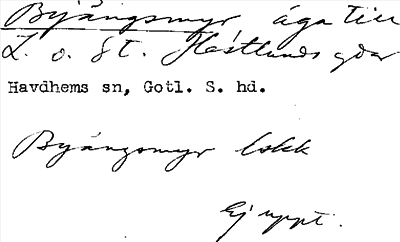 Byängsmyr äga till
L. o. St. Hästlunds gdar
Havdhems sn, Gotl. S. hd.
Byängsmyr lokk
Ej uppt.